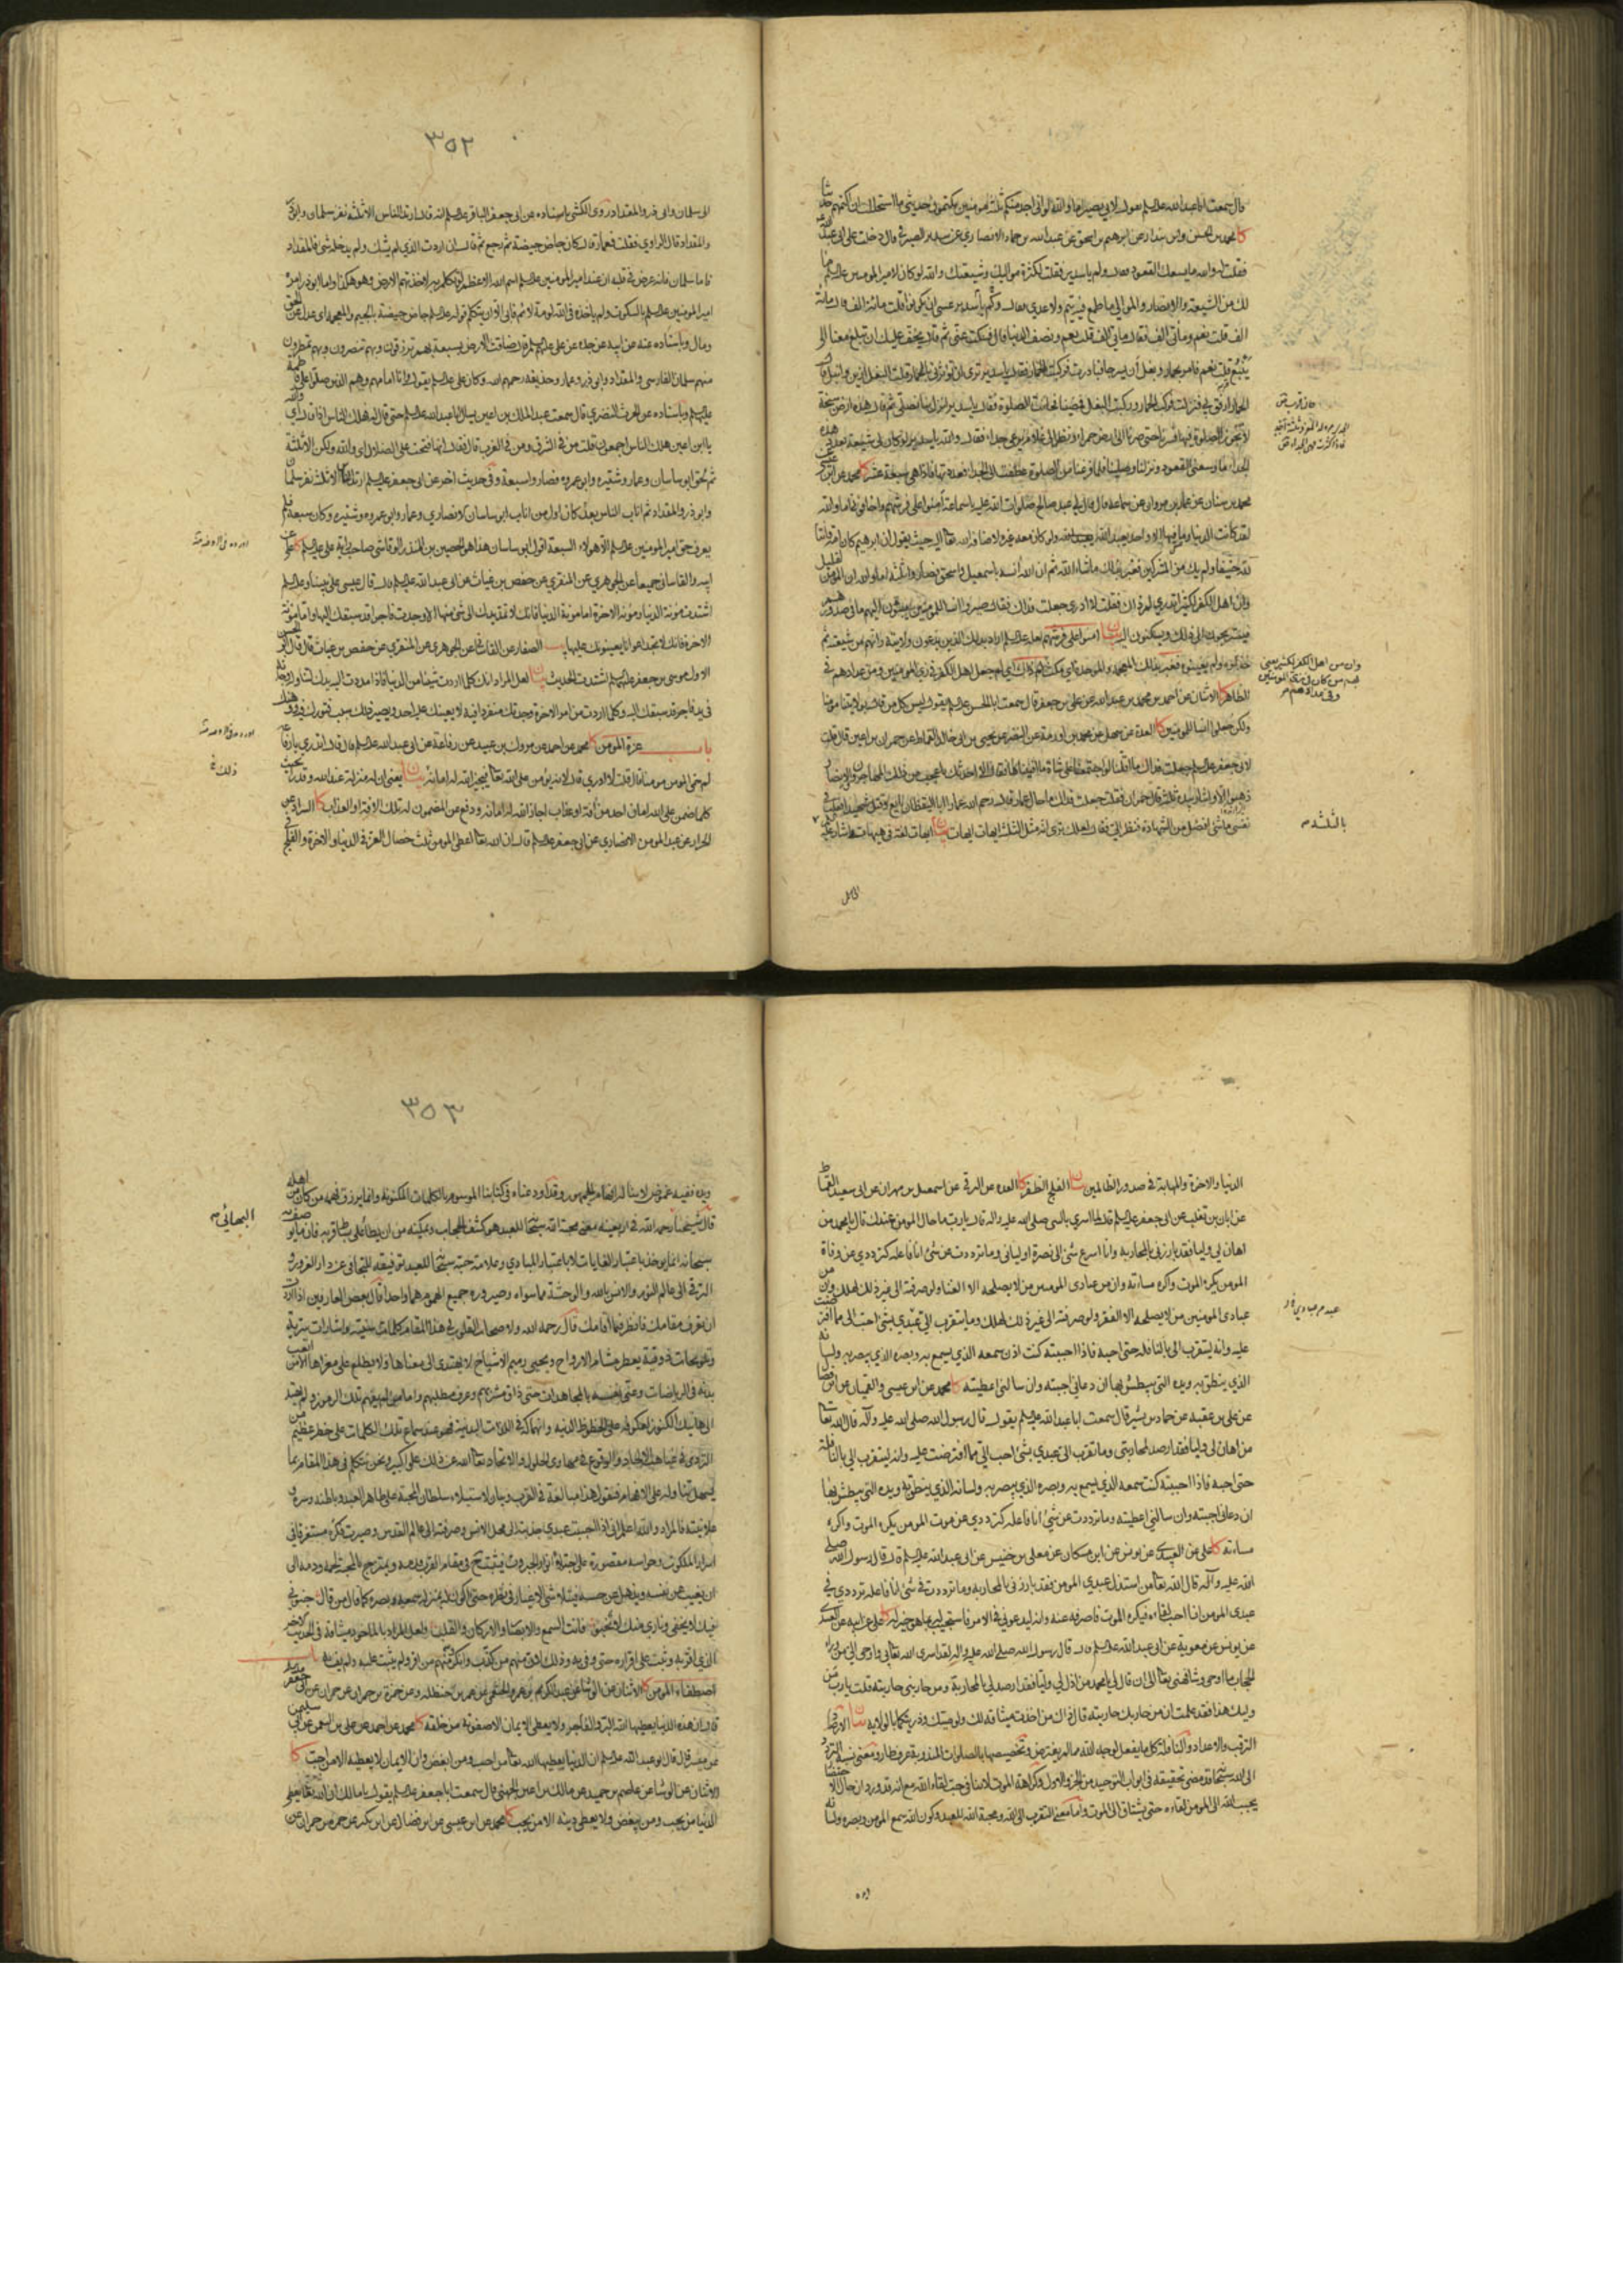 قال سمعت ابا عبدالله يقول لابي بصير اما والله لو اني اجد منكم ثلثة مؤمنين يكتمون حديثي ما استحللت ان اكتمهم
كا محمد بن الحسن وابن بندار عن ابراهيم بن اسحق عن عبدالله بن حماد الانصاري عن سدير الصيرفي قال دخلت على ابي عبدالله
فقلت له والله ما يسعك القعود فقال ولم يا سدير فقلت لكثرة مواليك وشيعتك والله لو كان لامير المومنين ما
لك من الشيعة والانصار والموالي ما طمع فيه تيم ولا عدي فقال وكم يا سدير عسى ان يكونوا قلت مائة الف قال مائة
الف قلت نعم ومأتي الف فقال ومأتي الف قلت نعم ونصف الدنيا قال فسكت عني ثم قال يخف عليك ان تبلغ معنا الى
ينبع قلت نعم فامر بحمار وبغل ان يسرجا فبادرت فركبت الحمار فقال يا سدير ترى ان تؤثرني بالحمار قلت البغل ازين وانبل قال
الحمار ارفق بي فنزلت فركب الحمار وركبت البغل فمضينا فحانت الصلوة فقال يا سدير انزل بنا نصلي ثم قال هذه ارض سبخة
لا تجوز الصلوة فيها فسرنا حتى صرنا الى ارض حمراء ونظر الى غلام يرعى جداء فقال والله يا سدير لو كان لي شيعة بعدد هذه
الجداء ما وسعني القعود ونزلنا وصلينا فلما فرغنا من الصلوة عطفت الى الجداء فعددتها فاذا هي سبعة عشر كا محمد عن
محمد بن سنان عن عمار بن مروان عن سماعة قال قال لي عبد صالح صلوات الله عليه يا سماعة امنوا على فرشهم واخافوني اما والله
لقد كانت الدنيا وما فيها الا واحد يعبد الله ولو كان معه غيره لاضافه الله تعالى اليه حيث يقول ان ابرهيم كان امة قانتا
لله حنيفا ولم يك من المشركين فغبر بذلك ما شاء الله ثم ان الله آنسه باسمعيل واسحق فصاروا ثلثة اما والله ان المؤمن لقليل
وان اهل الكفر لكثير اتدري لم ذاك فقلت لا ادري جعلت فداك فقال صيروا انسا للمومنين يبثون اليهم ما في صدورهم
فيستريحون الى ذلك ويسكنون اليه
ولكن جعلوا انسا للمومنين كا العدة عن سهل عن محمد بن اورمة عن النضر عن يحيى بن ابي خالد القماط عن حمران بن اعين قال قلت
لابي جعفر جعلت فداك ما اقلنا لو اجتمعنا على شاة ما افنيناها فقال الا احدثك باعجب من ذلك المهاجرون والانصار
ذهبوا الا واشار بيده ثلثة قال حمران فقلت جعلت فداك ما حال عمار قال رحم الله عمارا ابا اليقظان بايع وقتل شهيدا فقلت في
نفسي ما شئ افضل من الشهادة فنظر الي فقال لعلك ترى انه مثل الثلثة ايهات ايهات
وان من اهل الكفر لكثير يعني
بالثلثة
٣٥٢
الى سلمان وابي ذر والمقداد روى الكشي باسناده عن ابي جعفر الباقر انه قال ارتد الناس الا ثلثة نفر سلمان وابو ذر
والمقداد قال الراوي فقلت فعمار قال كان جاض جيضة ثم رجع ثم قال ان اردت الذي لم يشك ولم يدخله شئ فالمقداد
فاما سلمان فانه عرض في قلبه ان عند امير المومنين اسم الله الاعظم لو تكلم به لاخذتهم الارض وهو هكذا واما ابوذر فامره
امير المومنين بالسكوت ولم ياخذه في الله لومة لائم فابى الا ان يتكلم
ومال وباسناده عنه عن ابيه عن جده عن علي قال ضاقت الارض بسبعة بهم ترزقون وبهم تنصرون وبهم تمطرون
منهم سلمان الفارسي والمقداد وابوذر وعمار وحذيفة رحمهم الله وكان علي يقول وانا امامهم وهم الذين صلوا على فاطمة
عليهم وباسناده عن الحرث النضري قال سمعت عبد الملك بن اعين يسال ابا عبدالله حتى قال له فهلك الناس اذا قال اي والله
يا ابن اعين هلك الناس اجمعون قلت من في الشرق ومن في الغرب قال فقال انها فتحت على الضلال اي والله هلكوا الا ثلثة
ثم لحق ابو ساسان وعمار وشتيرة وابو عمرة فصاروا سبعة وفي حديث اخر عن ابي جعفر ارتد الناس الا ثلثة نفر سلمان
وابوذر والمقداد ثم اناب الناس بعد كان اول من اناب ابو ساسان الانصاري وعمار وابو عمرة وشتيرة وكان سبعة فلم
يعرف حق امير المومنين الا هولاء السبعة اقول ابو ساسان هذا هو الحصين بن المنذر الرقاشي صاحب راية علي كا علي عن
ابيه والقاساني جميعا عن الجوهري عن المنقري عن حفص بن غياث عن ابي عبدالله قال قال عيسى على نبينا و
اشتدت مؤنة الدنيا ومؤنة الاخرة اما مؤنة الدنيا فانك لا تمد يدك الى شئ منها الا وجدت فاجرا قد سبقك اليها واما مؤنة
الاخرة فانك لا تجد اعوانا يعينونك عليها يب الصفار عن القاساني عن الجوهري عن المنقري عن حفص بن غياث قال قال ابو الحسن
الاول موسى بن جعفر اشتدت الحديث بيان لعل المراد انك كلما اردت شيئا من الدنيا فاذا امددت اليه يدك لتناوله وجدته
في يد فاجر قد سبقك اليه وكلما اردت من امر الاخرة وجدتك منفردا فيه لا يعينك عليه احد
باب عزة المومن كا محمد عن احمد عن مروك بن عبيد عن رفاعة عن ابي عبدالله قال قال اتدري يا رفاعة
لم سمي المومن مومنا قال قلت لا ادري قال لانه يؤمن على الله تعالى فيجيز الله له امانه بيان يعني ان له منزلة عند الله وقدرا بحيث
كلما ضمن على الله امان احد من آفة او عقاب اجاز الله له امانه ودفع عن المضمون له تلك الافة او العذاب كا السراد عن
الخراز عن عبد المومن الانصاري عن ابي جعفر قال ان الله تعالى اعطى المومن ثلث خصال العز في الدنيا والاخرة والفلج في
ذلك
الدنيا والاخرة والمهابة في صدور الظالمين بيان الفلج الظفر كا العدة عن البرقي عن اسمعيل بن مهران عن ابي سعيد القماط
عن ابان بن تغلب عن ابي جعفر قال لما اسري بالنبي صلى الله عليه واله قال يا رب ما حال المومن عندك قال يا محمد من
اهان لي وليا فقد بارزني بالمحاربة وانا اسرع شئ الى نصرة اوليائي وما ترددت عن شئ انا فاعله كترددي عن وفاة
المومن يكره الموت واكره مساءته وان من عبادي المومنين من لا يصلحه الا الغنا ولو صرفته الى غير ذلك لهلك وان من
عبادي المومنين من لا يصلحه الا الفقر ولو صرفته الى غير ذلك لهلك وما يتقرب الي عبدي بشئ احب الي مما افترضت
عليه وانه ليتقرب الي بالنافلة حتى احبه فاذا احببته كنت اذن سمعه الذي يسمع به وبصره الذي يبصر به ولسانه
الذي ينطق به ويده التي يبطش بها ان دعاني اجبته وان سالني اعطيته كا محمد عن ابن عيسى والقميان عن ابن فضال
عن علي بن عقبة عن حماد بن بشير قال سمعت ابا عبدالله يقول قال رسول الله صلى الله عليه وآله قال الله تعالى
من اهان لي وليا فقد ارصد لمحاربتي وما تقرب الي عبدي بشئ احب الي مما افترضت عليه وانه ليتقرب الي بالنافلة
حتى احبه فاذا احببته كنت سمعه الذي يسمع به وبصره الذي يبصر به ولسانه الذي ينطق به ويده التي يبطش بها
ان دعاني اجبته وان سالني اعطيته وما ترددت عن شئ انا فاعله كترددي عن موت المومن يكره الموت واكره
مساءته كا علي عن العبيدي عن يونس عن ابن مسكان عن معلى بن خنيس عن ابي عبدالله قال قال رسول الله صلى
الله عليه وآله قال الله تعالى من استذل عبدي المومن فقد بارزني بالمحاربة وما ترددت في شئ انا فاعله كترددي في
عبدي المومن اني احب لقاءه فيكره الموت فاصرفه عنه وانه ليدعوني في الامر فاستجيب له بما هو خير له كا علي عن ابيه عن
عن يونس عن معوية عن ابي عبدالله قال قال رسول الله صلى الله عليه واله لقد اسرى الله تعالى بي واوحى الي من وراء
الحجاب ما اوحى وشافهني تعالى الى ان قال لي يا محمد من اذل لي وليا فقد ارصد لي بالمحاربة ومن حاربني حاربته قلت يا رب من
وليك هذا فقد علمت ان من حاربك حاربته قال ذاك من اخذت ميثاقه لك ولوصيك وذريتكما بالولاية بيان الارصاد
الترقب والاعداد والنافلة كل ما يفعل لوجه الله مما لم يفترض وتخصيصها بالصلوات المندوبة عرف طار ومعنى نسبة التردد
الى الله سبحانه قد مضى تحقيقه في ابواب التوحيد من الجزء الاول وكراهة الموت لا تنافي حب لقاء الله
يحبب الله الى المومن لقاءه حتى يشتاق الى الموت واما معنى التقرب الى الله ومحبة الله للعبد وكون الله سمع المومن وبصره ولسانه
ويده
٣٥٣
ويده ففيه غموض لا يناله افهام الجمهور وقد اودعناه في كتابنا الموسوم بالكلمات المكنونة وانما يرزق فهمه من كان من اهله
قال شيخنا رحمه الله في اربعينه معنى محبة الله سبحانه للعبد هو كشف الحجاب وتمكينه من ان يطأ على بساط قربه فان ما يوصف به
سبحانه انما يوخذ باعتبار الغايات لا باعتبار المبادي وعلامة حبه سبحانه للعبد توفيقه للتجافي عن دار الغرور و
الترقي الى عالم النور والانس بالله والوحشة مما سواه وصيرورة جميع الهموم هما واحدا قال بعض العارفين اذا اردت
ان تعرف مقامك فانظر فيما اقامك قال رحمه الله ولاصحاب القلوب في هذا المقام كلمات سنية واشارات سرية
وتلويحات ذوقية يعطر مشام الارواح ويحيي رميم الاشباح لا يهتدي الى معناها ولا يطلع على مغزاها الا من اتعب
بدنه في الرياضات وعنى نفسه بالمجاهدات حتى ذاق مشربهم وعرف مطلبهم واما من لم يفهم تلك الرموز ولم يهتد
الى هاتيك الكنوز لعكوفه على الحظوظ الدنية وانهماكه في اللذات البدنية فهو عند سماع تلك الكلمات على خطر عظيم من
التردي في غياهب الالحاد والوقوع في مهاوي الحلول والاتحاد تعالى الله عن ذلك علوا كبيرا ونحن نتكلم في هذا المقام بما
يسهل تناوله على الافهام فنقول هذا مبالغة في القرب وبيان لاستيلاء سلطان المحبة على ظاهر العبد وباطنه وسره و
علانيته فالمراد والله اعلم اني اذا احببت عبدي جذبته الى محل الانس وصرفته الى عالم القدس وصيرت فكره مستغرقا في
اسرار الملكوت وحواسه مقصورة على اجتلاء انوار الجبروت فيثبت في مقام القرب قدمه ويمتزج بالمحبة لحمه ودمه الى
ان يغيب عن نفسه ويذهل عن حسه فيتلاشى الاغيار في نظره حتى اكون له بمنزلة سمعه وبصره كما قال من قال جنوني
فيك لا يخفى وناري منك لا تخبو فانت السمع والابصار والاركان والقلب ولعل المراد بالماخوذ ميثاقه في الحديث الاخير
الذي اقر به وثبت على اقراره حتى وفى به وذلك لان منهم من كذب وانكر ومنهم من اقر ولم يثبت عليه ولم يف به باب
اصطفاء المومن كا الاثنان عن الوشاء عن عبد الكريم بن عمرو الخثعمي عن عمر بن حنظلة وعن حمزة بن حمران عن حمران عن ابي جعفر
قال ان هذه الدنيا يعطيها الله البر والفاجر ولا يعطي الايمان الا صفوته من خلقه كا محمد عن احمد عن علي بن النعمن عن ابي سليمن
عن ميسر قال قال ابو عبدالله ان الدنيا يعطيها الله تعالى من احب ومن ابغض وان الايمان لا يعطيه الا من احب كا
الاثنان عن الوشاء عن عاصم بن حميد عن مالك بن اعين الجهني قال سمعت ابا جعفر يقول يا مالك ان الله تعالى يعطي
الدنيا من يحب ومن يبغض ولا يعطي دينه الا من يحب كا محمد عن ابن عيسى عن ابن فضال عن ابن بكير عن حمزة بن حمران عن
البهائي